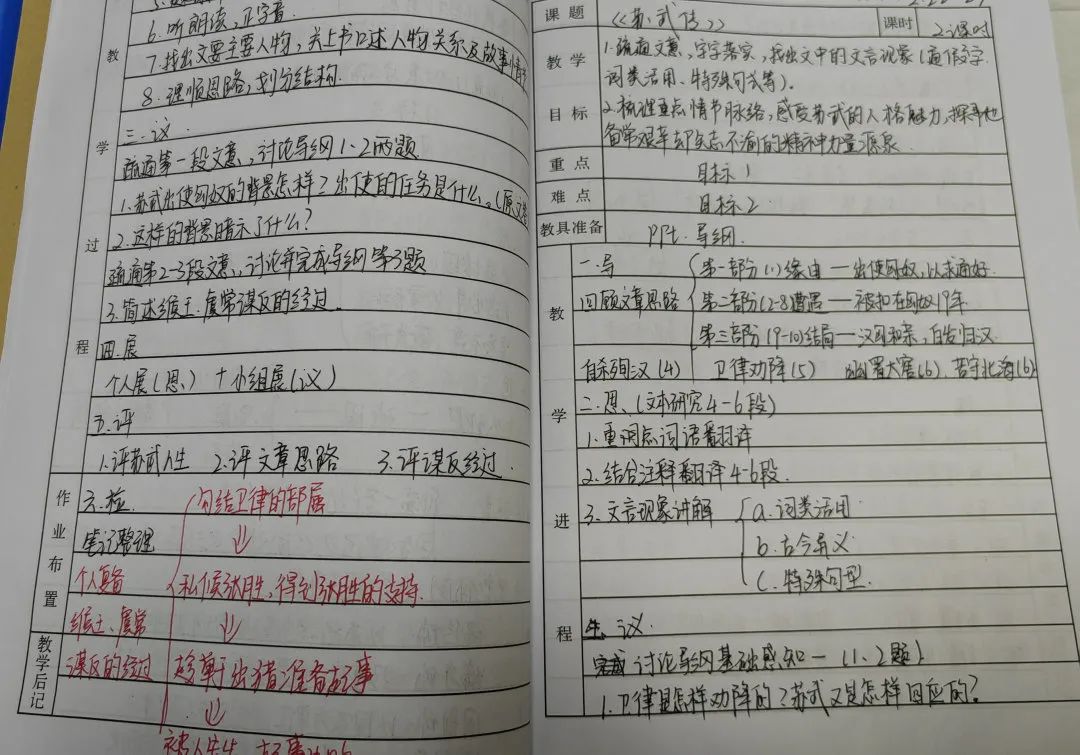 6.听朗读,正字音
7.找出文要主要人物,关上书口述人物关系及故事情节
8.理顺思路,划分结构.
三.议.
疏通第一段文意,讨论导纲1.2两题
1.苏武出使匈奴的背景怎样?出使的任务是什么。(原文
2.这样的背景暗示了什么?
疏通第2-3段文意,讨论并完成导纲第3题
3.简述缑王.虞常谋反的经过.
四.展
个人展(思) + 小组展(议)
五.评
1.评苏武人生 2.评文章思路 3.评谋反经过.
教学过程
作业布置
六.检
笔记整理
个人复备
缑王、虞常
谋反的经过
教学后记
勾结卫律的部属
⇓
私候张胜,得到张胜的支持.
⇓
趁单于出猎准备起事
⇓
课题
《苏武传》
课时
2课时
教学目标
1.疏通文意,字字落实,找出文中的文言现象(通假字.
词类活用、特殊句式等).
2.梳理重点情节脉络,感受苏武的人格魅力,探寻他
备尝艰辛却矢志不渝的精神力量源泉
重点
目标1
难点
目标2
教具准备
PPt.导纲.
教学进程
一.导
回顾文章思路
第一部分(1)缘由—出使匈奴,以求通好.
第二部分(2-8)遭遇—被扣在匈奴19年
第三部分(9-10)结局—汉匈和亲,白发归汉.
自杀殉汉(4) 卫律劝降(5) 幽置大窖(6). 苦守北海(6)
二.思.(文本研究4-6段)
1.重点词语翻译
2.结合注释翻译4-6段.
3.文言现象讲解
a.词类活用
b.古今异义
c.特殊句型.
议.
完成 讨论导纲基础感知一(1、2题)
1.卫律是怎样劝降的?苏武又是怎样回应的?